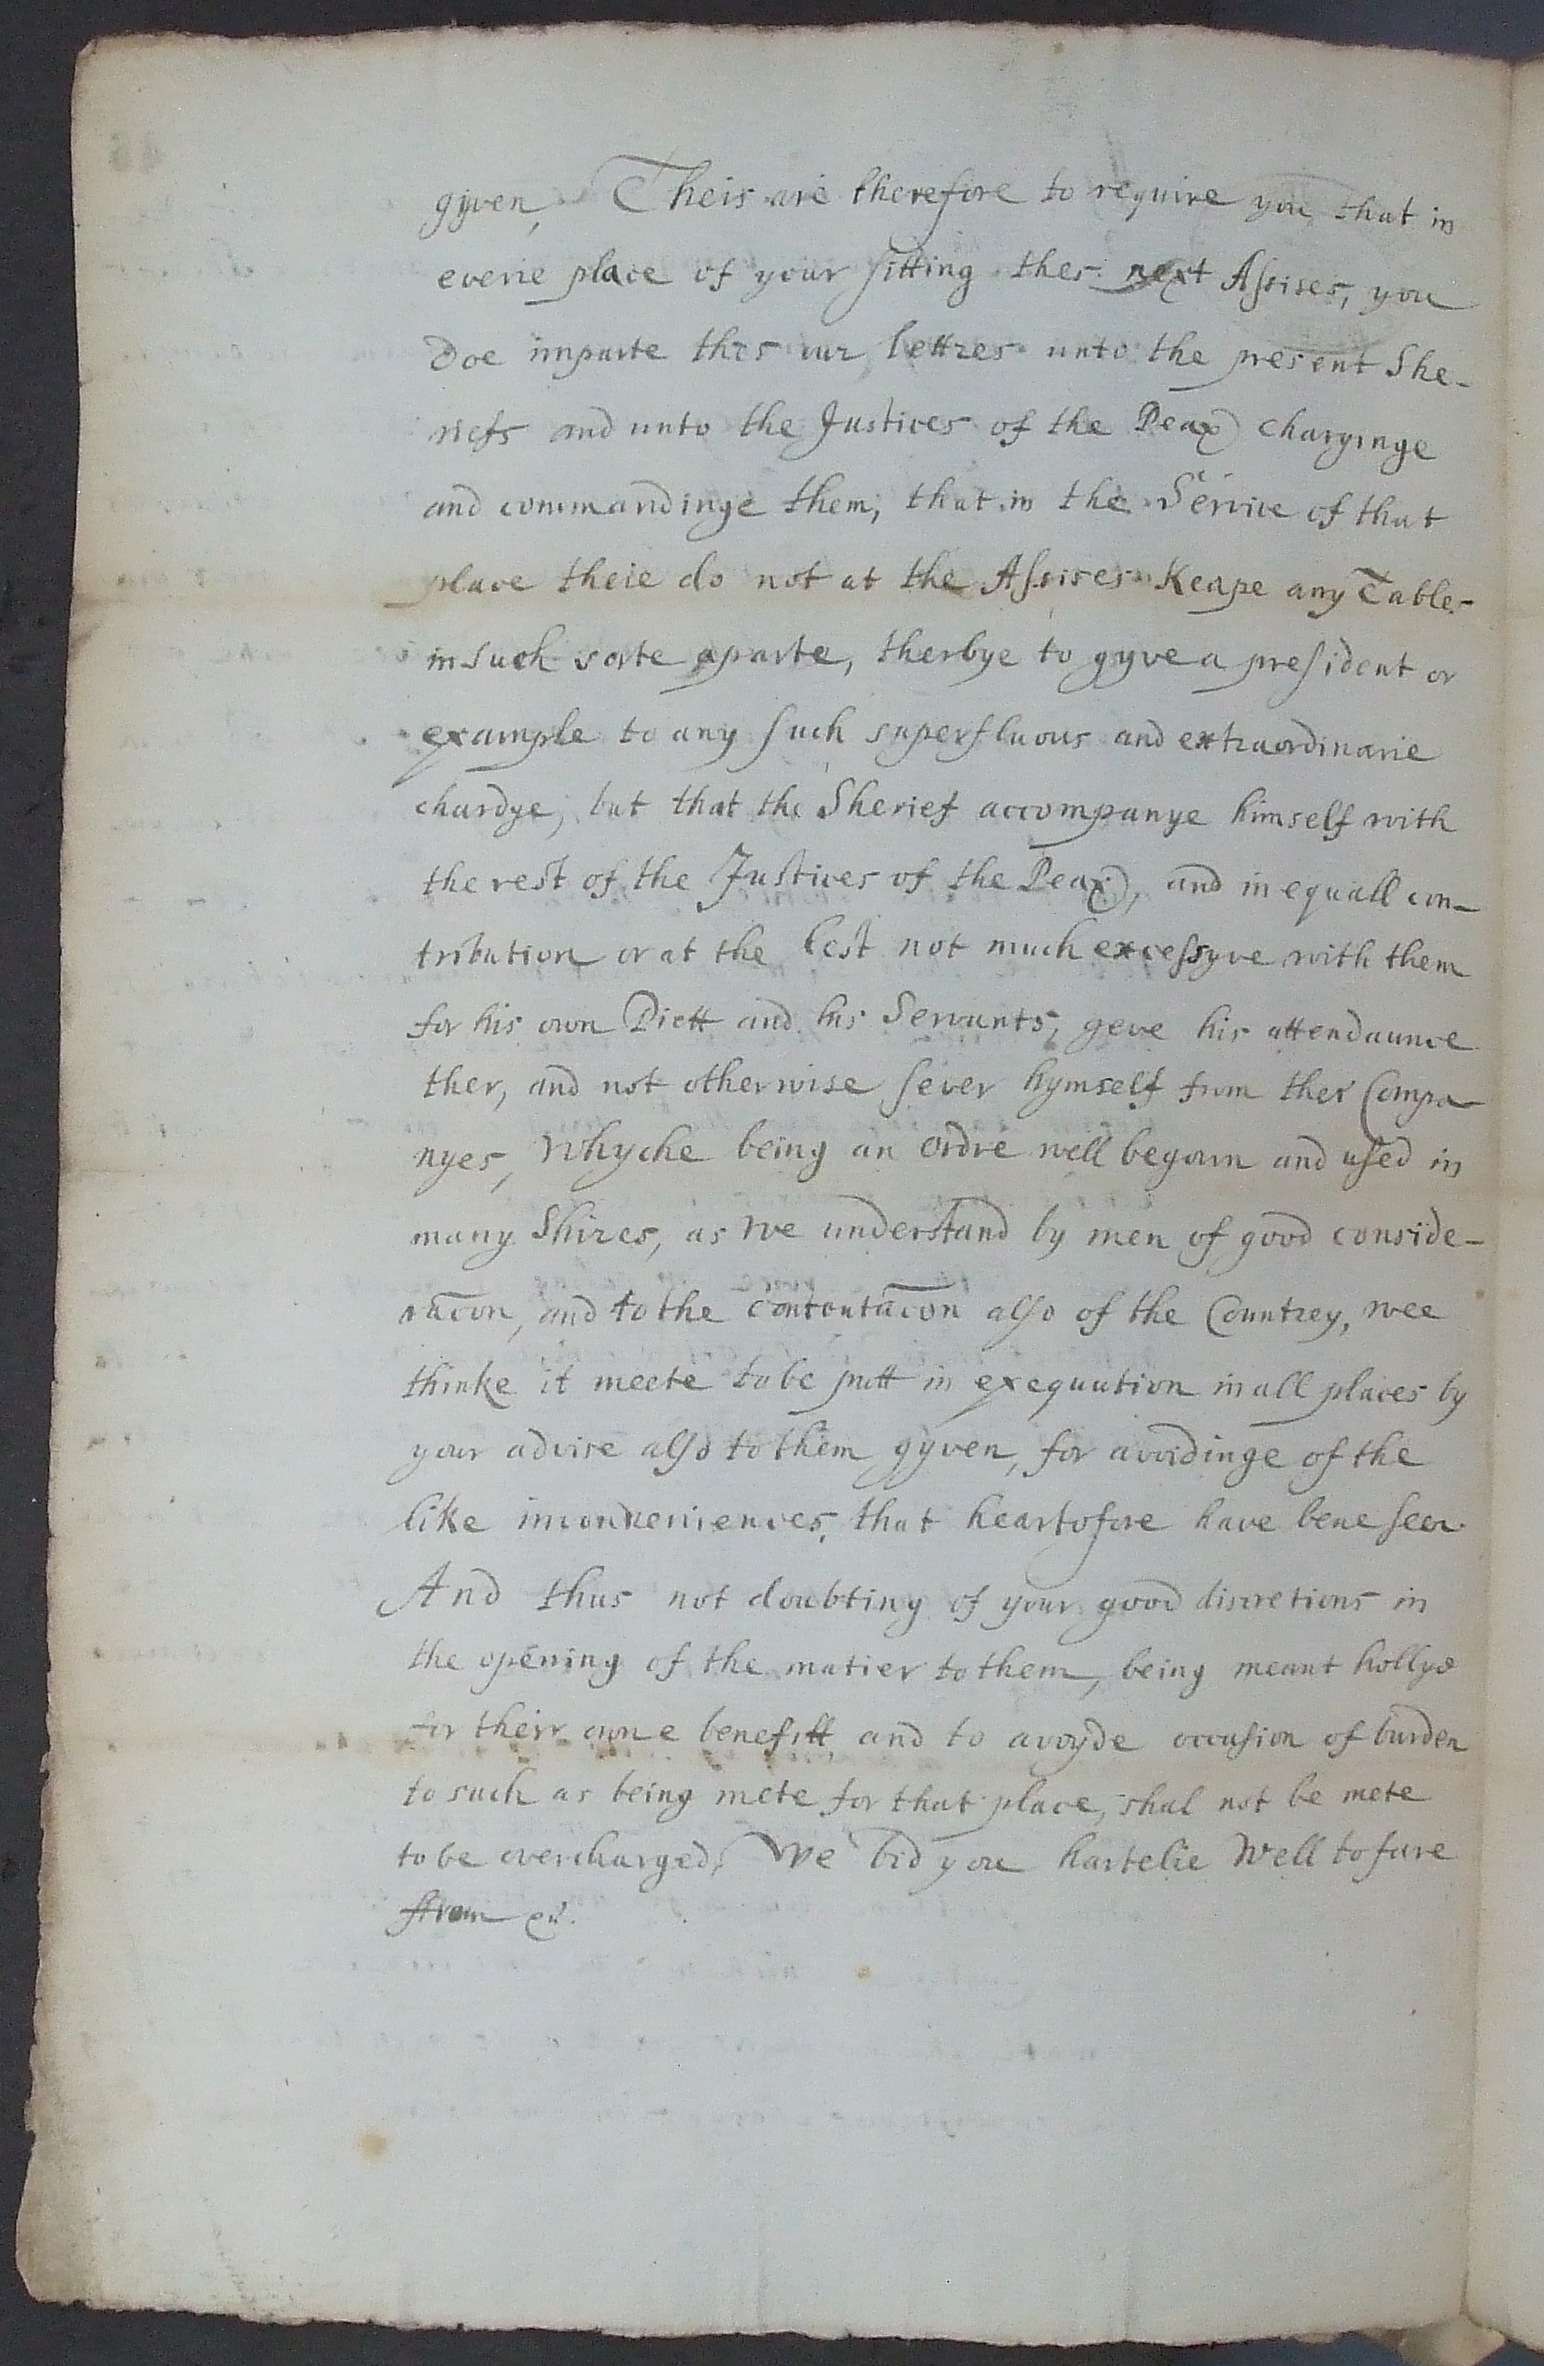 gyven, Theis are therefore to require you, that in
everie place of your sitting thes next Assises, you
doe imparte thes our lettres unto the present She-
riefs and unto the Justices of the Peax, charginge
and commandinge them, that in the Service of that
place theie do not at the Assises Keape any Table
in such sorte aparte, therbye to gyve a president or
example to any such superfluous and extraordinarie
chardge, but that the Sherief accompanye himself with
the rest of the Justices of the Peax, and in equall con-
tribution or at the lest not much excessyve with them
for his own Diett and his Servants, geve his attendaunce
ther, and not otherwise sever hymself from ther Compa-
nyes, Whyche being an ordre well begown and used in
many Shires, as we understand by men of good conside-
racon, and to the contentacon also of the Countrey, wee
thinke it meete to be putt in exequution in all places by
your advise also to them gyven, for avoidinge of the
like inconveniences, that heartofore have bene seen.
And thus not doubting of your good discretions in
the opening of the matier to them, being meant hollye
for their owne benefitt, and to avoyde occasion of burden
to such as being mete for that place, shal not be mete
to be overcharged, We bid you hartelie Well to fare
ffrom &c.